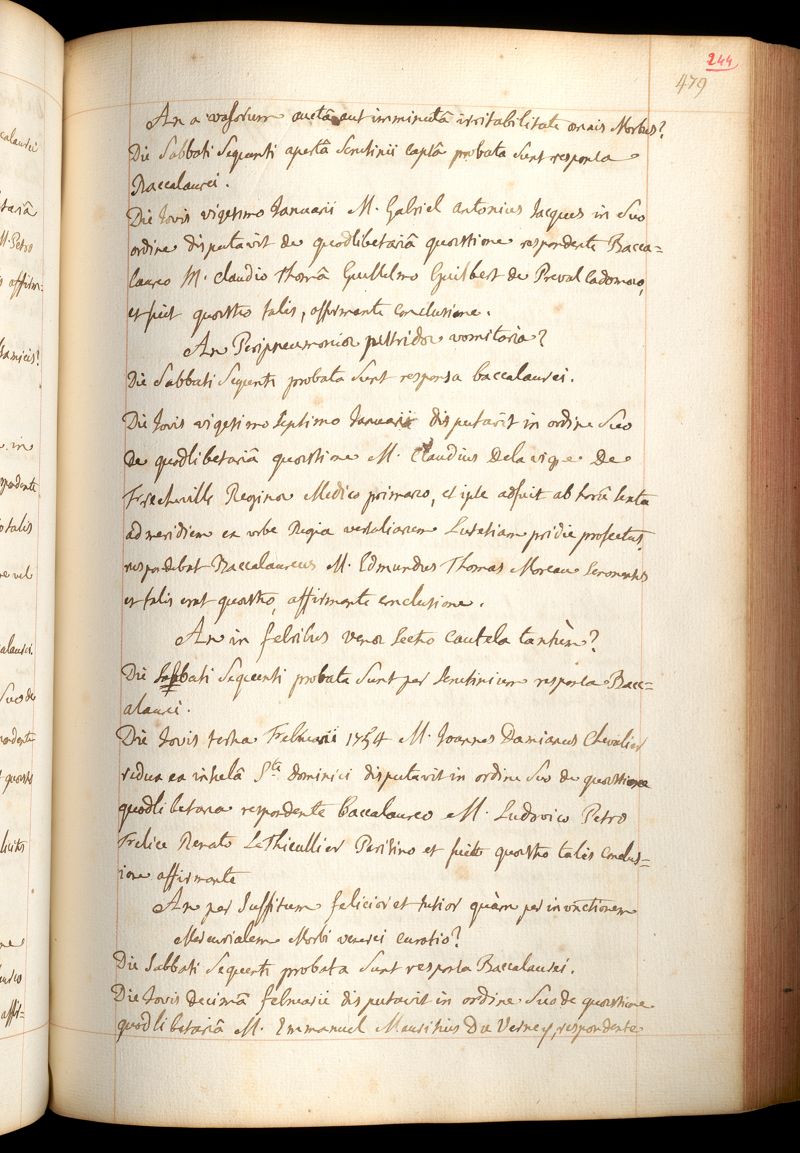 244
479
An a vasorum auctâ aut imminutâ irritabilitate omnis Morbus?
Die Sabbati Sequenti apertâ Scrutinii captâ probata Sunt responsa
Baccalaurei.
Die Jovis vigesimo Januarii M. Gabriel Antonius Jacques in Suo
ordine disputavit de quodlibetariâ quæstione respondente Bacca=
laureo M. Claudio Thomâ Guillelmo Guilbert de Preval Cadomæo,
et fuit quæstio talis, affirmante conclusione.
An Peripneumoniæ putridæ vomitoria?
Die Sabbati Sequenti probata Sunt responsa baccalaurei.
Die Jovis vigesimo Septimo Januarii disputavit in ordine Suo
de quodlibetariâ quæstione M. Claudius Delavigne De
Frecheville Reginæ Medico primario, et ipse adfuit ab horâ Sexta
ad meridiem ex urbe Regia versaliarum Lutetiam pridie profectus,
respondebat Baccalaureus M. Edmundus Thomas Moreau
et talis erat quæstio, affirmante conclusione.
An in febribus venæ Sectio cautela tantùm?
Die Sabbati Sequenti probata Sunt per Scrutinium responsa Bacc=
alaurei.
Die Jovis tertia Februarii 1754 M. Joannes Damianus Chevalier
redux ex insulâ Sti. dominici disputavit in ordine Suo de quæstione
quodlibetaria respondente Baccalaureo M. Ludovico Petro
Felice Renato LeThieullier Parisino et fuit quæstio talis conclus=
ione affirmante
An per Suffitum felicior et tutior quàm per inunctionem
Mercurialem Morbi venerei curatio?
Die Sabbati Sequenti probata Sunt responsa Baccalaurei.
Die Jovis decimâ februarii disputavit in ordine Suo de quæstione
quodlibetariâ M. Emmanuel Mauritius Du Verney, respondente